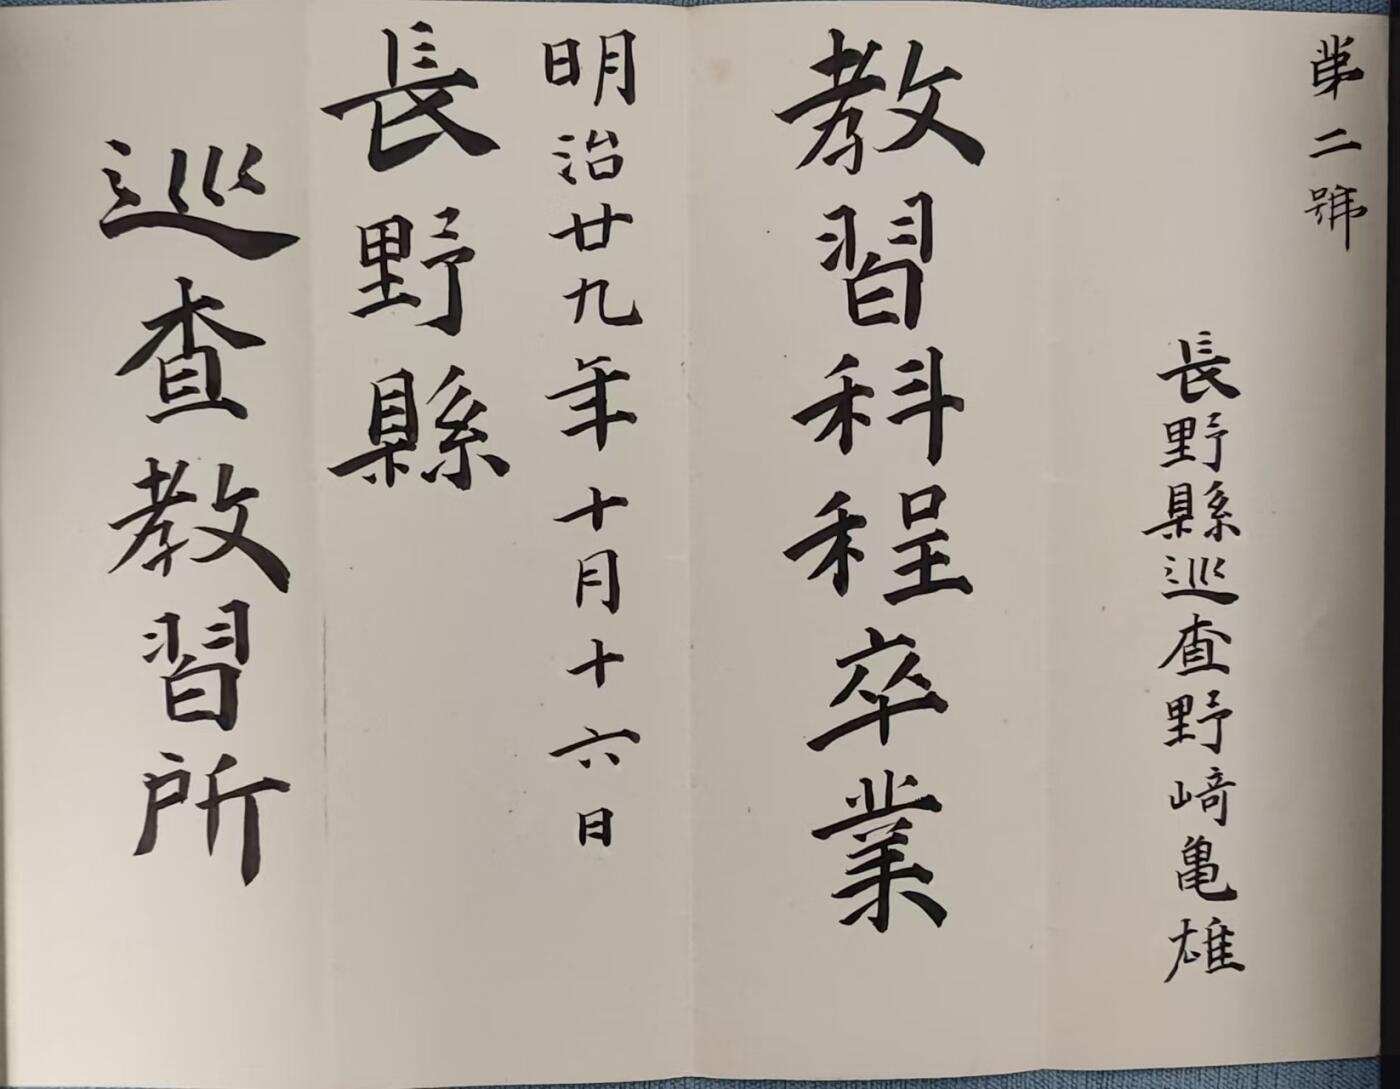 第二號
長野縣巡查野﨑亀雄
教習科程卒業
明治廿九年十月十六日
長野縣
巡查教習所